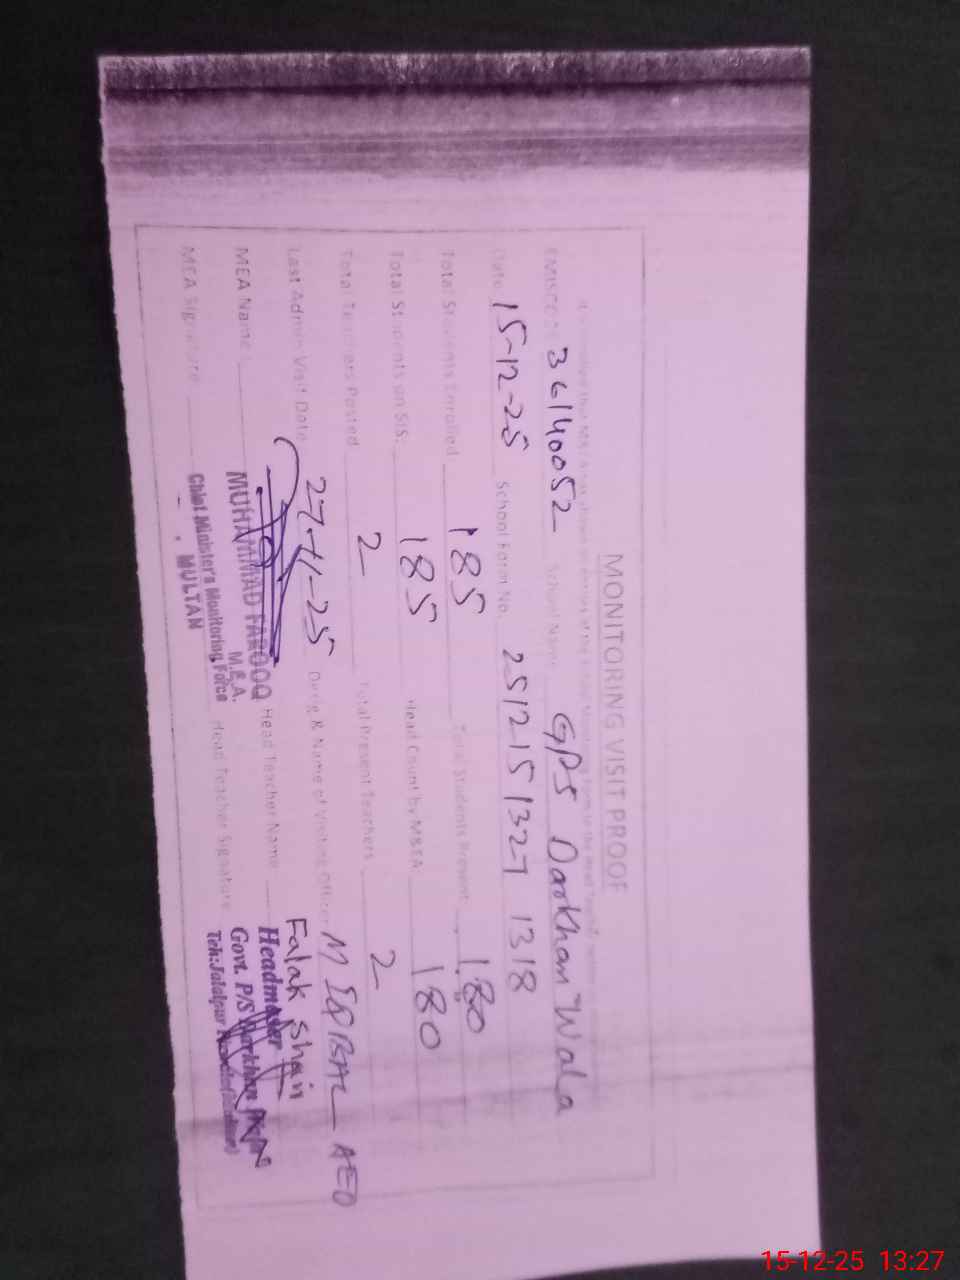 MONITORING VISIT PROOF
EMISCODE 36140052 School Name GPS Darkhan Wala
Date 15-12-25 School Form No. 251215 1327 1318
Total Students Enrolled 185 Total Students Present 180
Total Students on SIS: 185 Head Count by MEA 180
Total Teachers Posted 2 Total Present Teachers 2
Last Admin Visit Date 27-11-25 Desig & Name of Visiting Officer M IQBAL AEO
MEA Name Head Teacher Name Falak Shair
MEA Signature Head Teacher Signature
MUHAMMAD FAROOQ
M.E.A.
Chief Minister's Monitoring Force
MULTAN
Headmaster
Govt. P/S Darkhan
Teh:Jalalpur
15-12-25 13:27